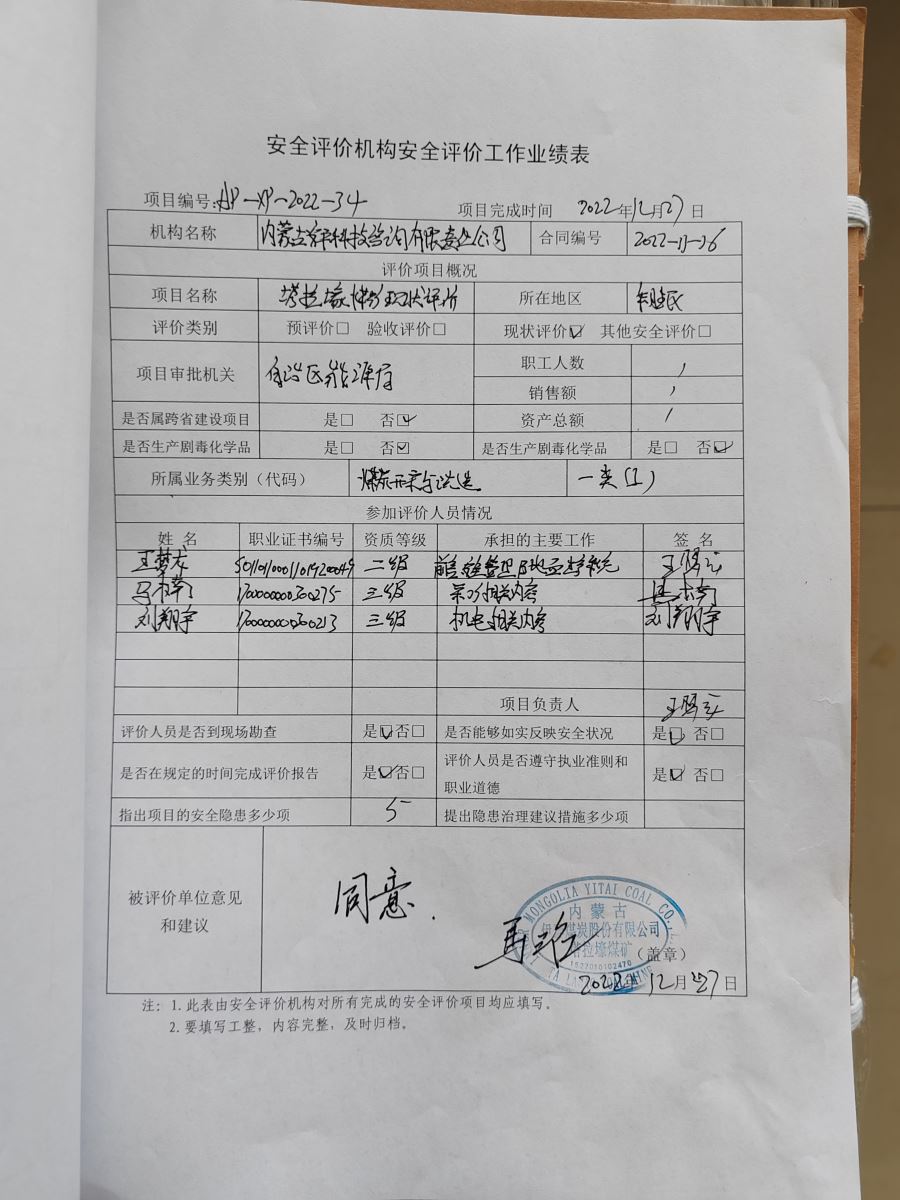 安全评价机构安全评价工作业绩表
项目编号:AP-XP-2022-34 项目完成时间 2022年12月27日
机构名称 内蒙古 科技咨询有限责任公司 合同编号 2022-11-26
评价项目概况
项目名称 塔拉壕煤矿现状评价 所在地区
评价类别 预评价□ 验收评价□ 现状评价☑ 其他安全评价□
项目审批机关 自治区能源局 职工人数 /
销售额 /
是否属跨省建设项目 是□ 否☑ 资产总额 /
是否生产剧毒化学品 是□ 否☑ 是否生产剧毒化学品 是□ 否☑
所属业务类别（代码） 煤炭开采与洗选 一类(1)
参加评价人员情况
姓 名 职业证书编号 资质等级 承担的主要工作 签 名
S01101100011019200049 二级
1700000000300275 三级 相关内容
刘翔宇 1700000000300213 三级 机电相关内容 刘翔宇
项目负责人
评价人员是否到现场勘查 是☑否□ 是否能够如实反映安全状况 是☑ 否□
是否在规定的时间完成评价报告 是☑否□ 评价人员是否遵守执业准则和
职业道德 是☑ 否□
指出项目的安全隐患多少项 5 提出隐患治理建议措施多少项
被评价单位意见
和建议
同意.
MONGOLIA YITAI COAL CO.,
内蒙古
煤炭股份有限公司
塔拉壕煤矿
1527010102470
（盖章）
2022年12月27日
注：1.此表由安全评价机构对所有完成的安全评价项目均应填写。
2.要填写工整，内容完整，及时归档。